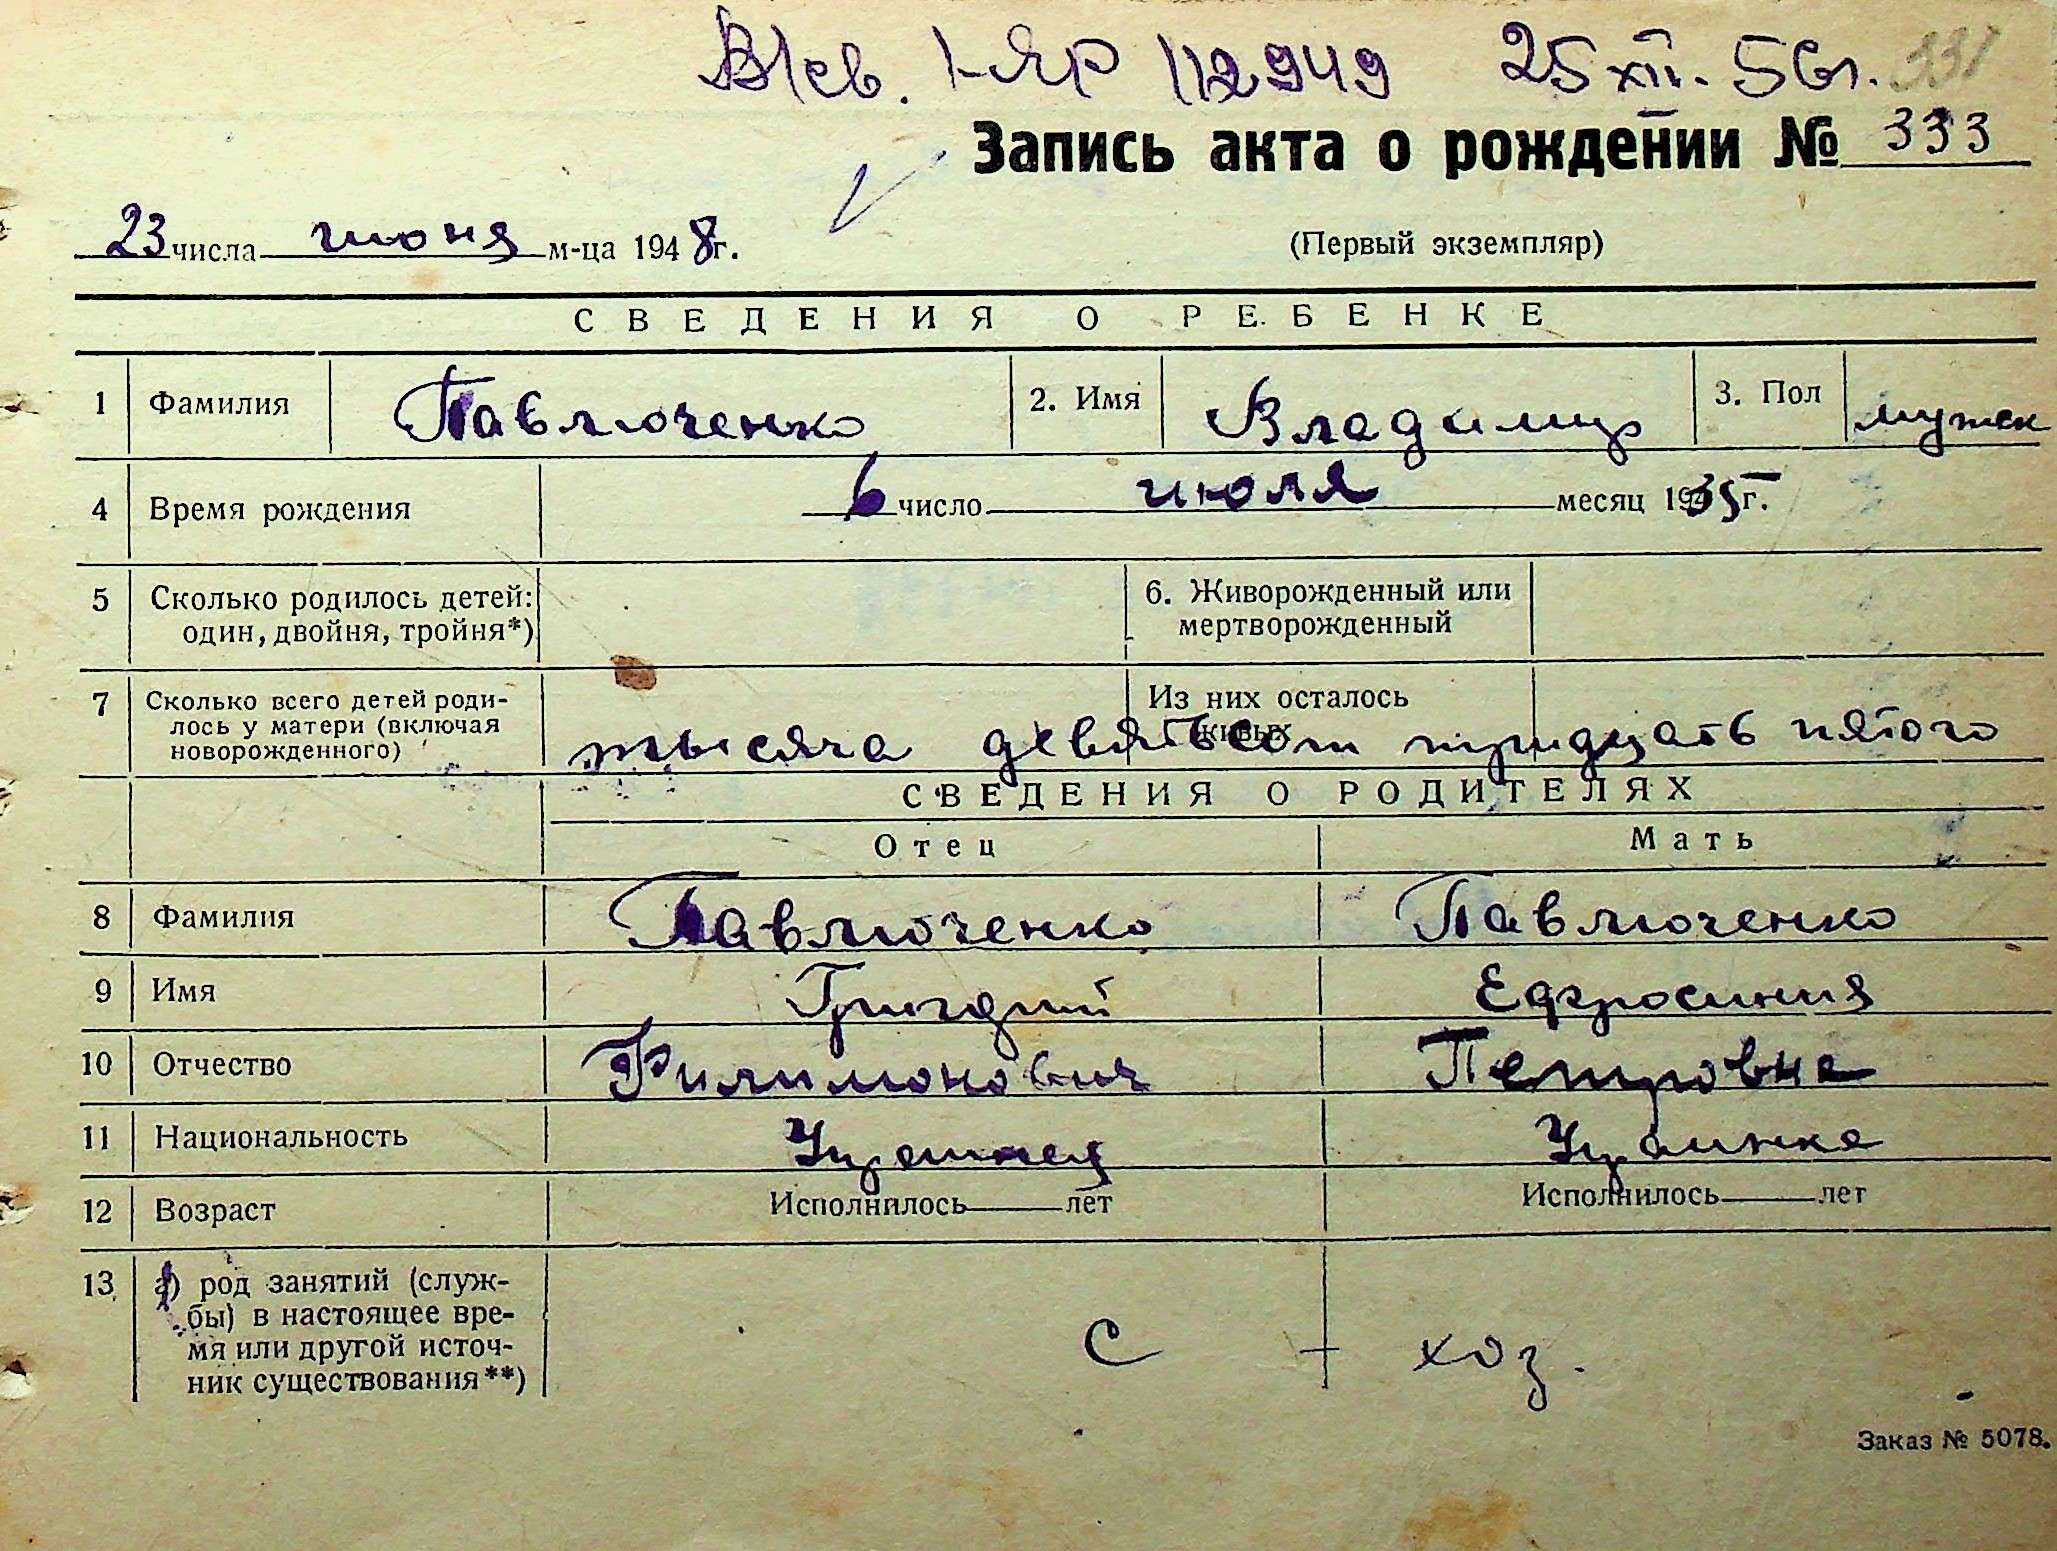 В/св. I-ЯР 112949 25 XII. 56 г. 331
Запись акта о рождении № 333
23 числа июня м-ца 1948 г.
(Первый экземпляр)
СВЕДЕНИЯ О РЕБЕНКЕ
1 Фамилия Павлюченко 2. Имя Владимир 3. Пол мужск
4 Время рождения 6 число июля месяц 1935 г.
5 Сколько родилось детей: один, двойня, тройня*) 6. Живорожденный или мертворожденный
7 Сколько всего детей роди-
лось у матери (включая
новорожденного) Из них осталось
живых
тысяча девятьсот тридцать пятого
СВЕДЕНИЯ О РОДИТЕЛЯХ
Отец Мать
8 Фамилия Павлюченко Павлюченко
9 Имя Григорий Ефросиния
10 Отчество Филимонович Петровна
11 Национальность Украинец Украинка
12 Возраст Исполнилось лет Исполнилось лет
13 а) род занятий (служ-
бы) в настоящее вре-
мя или другой источ-
ник существования**) С хоз.
Заказ № 5078.